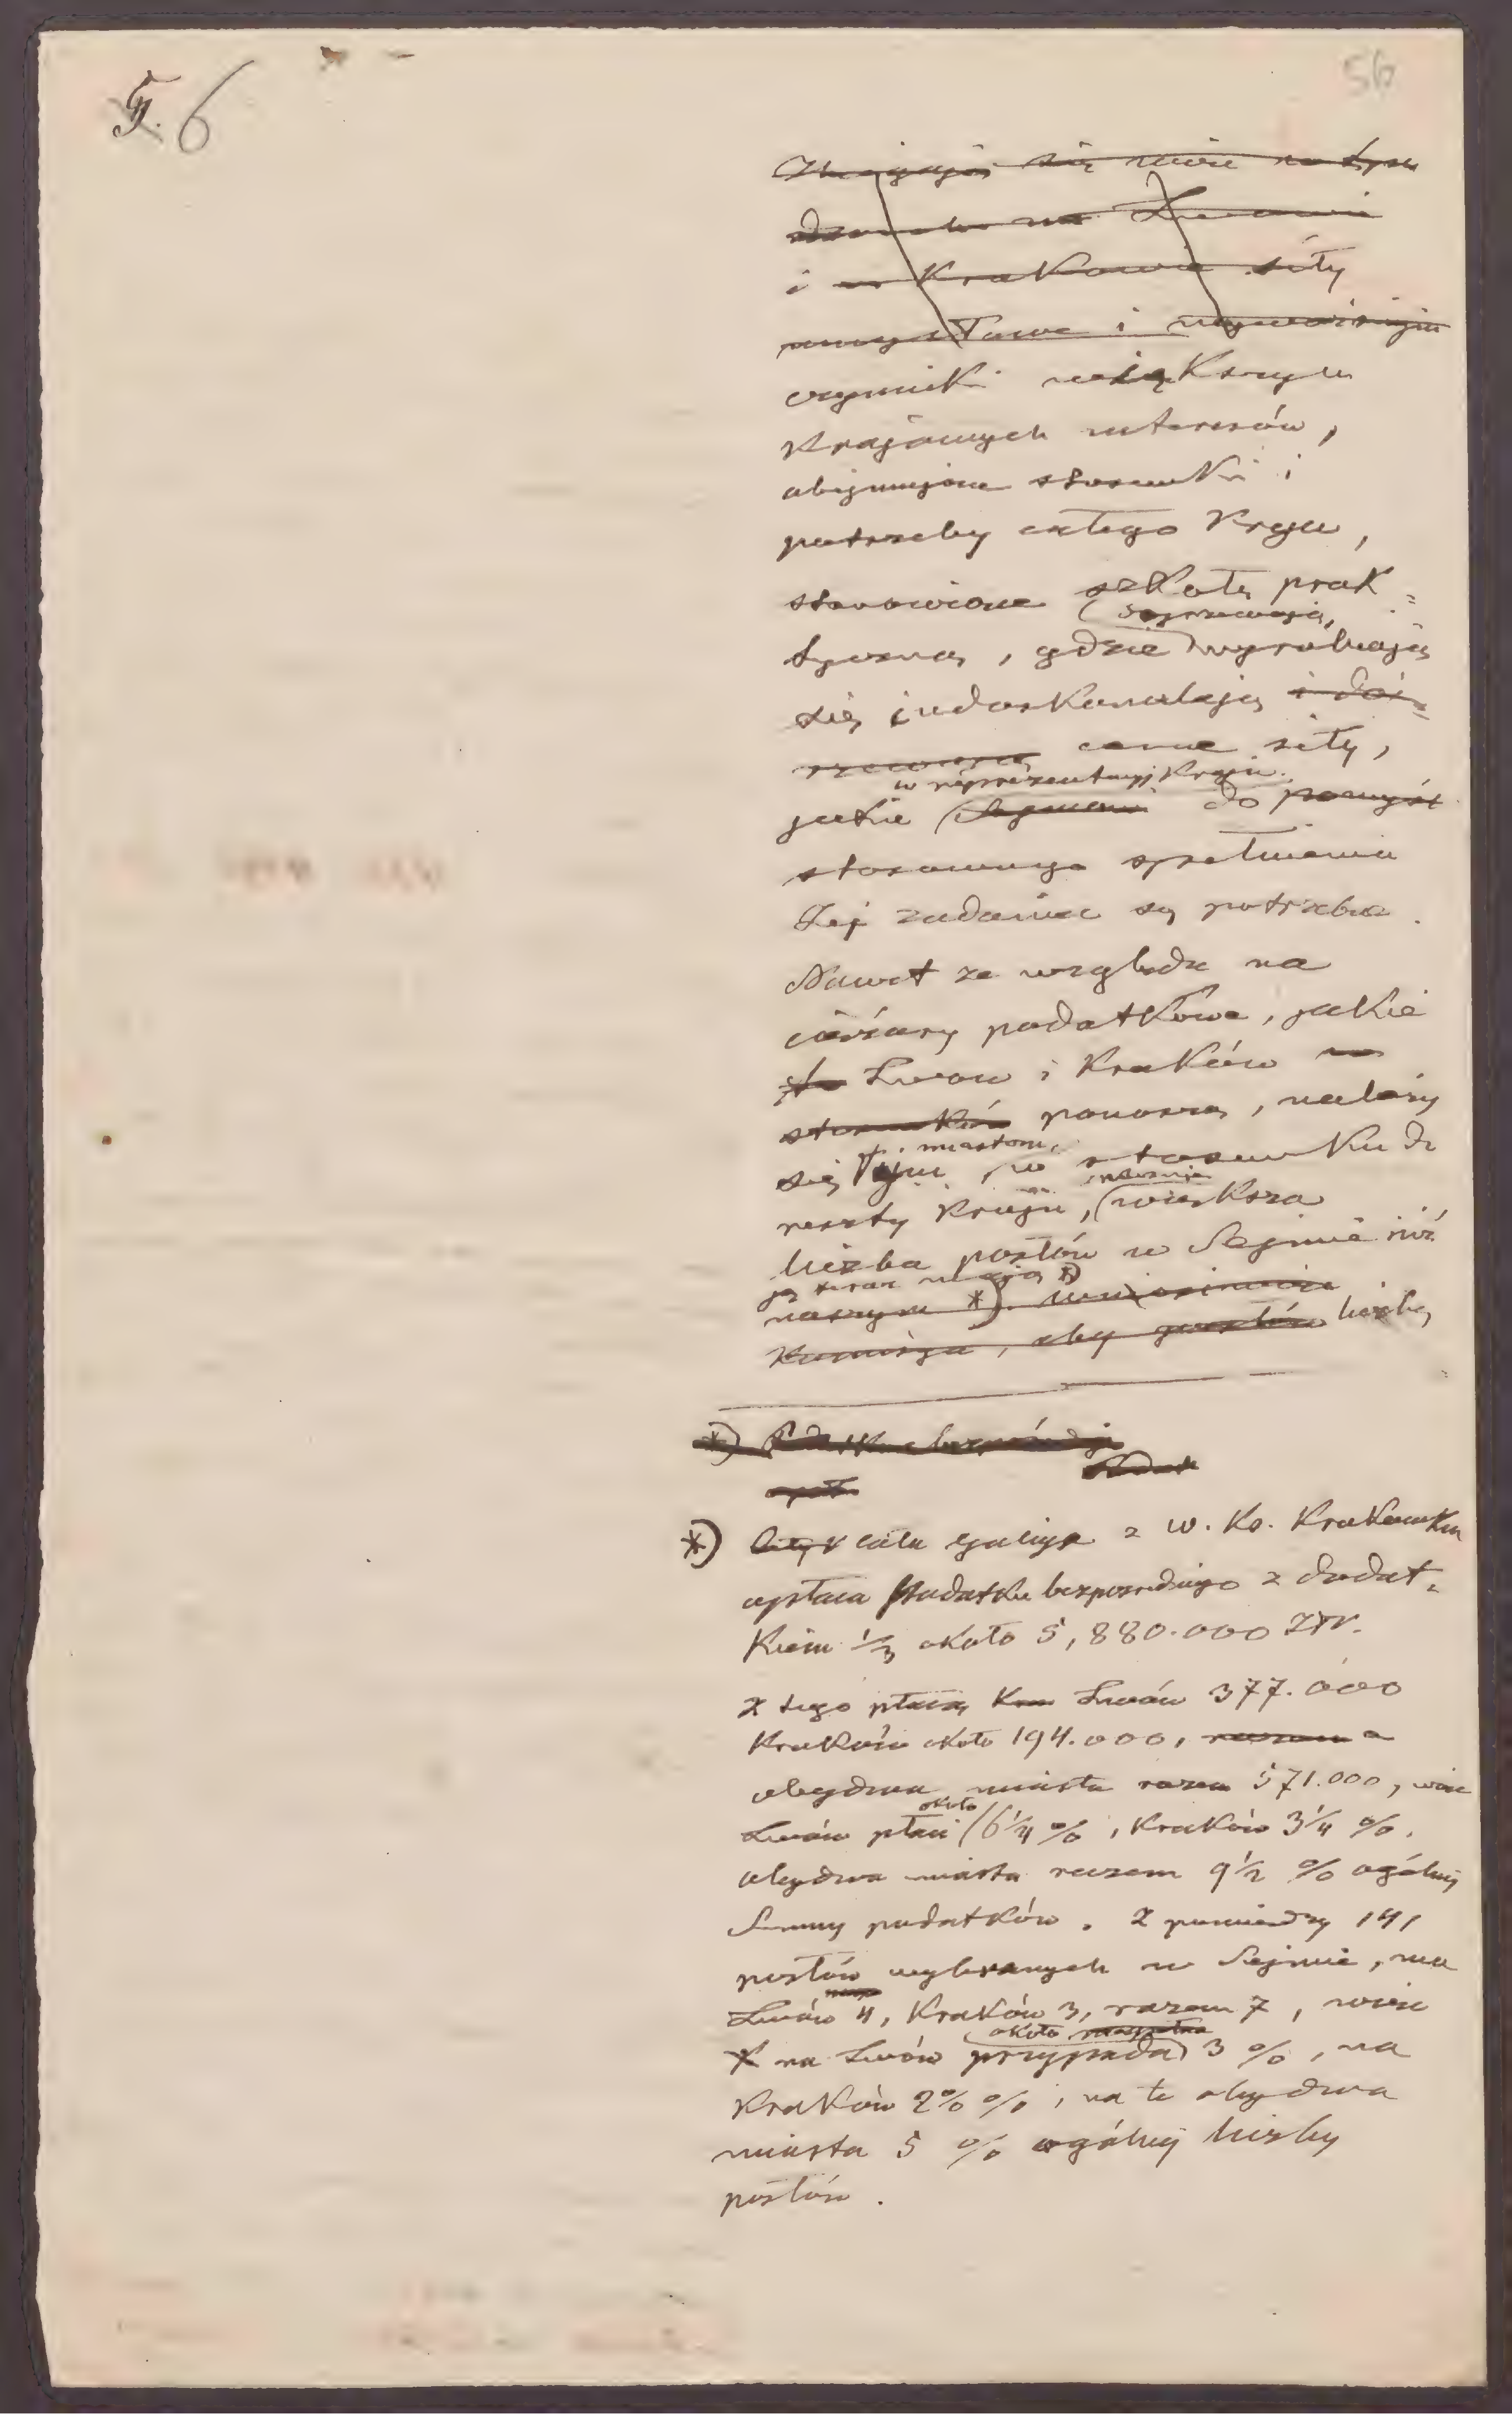 6
56
i w Krakowie siły
umysłowe i
czynniki większych
Krajowych interesów,
obejmujące stosunki i
potrzeby całego Kraju,
stanowiące szkołę prak=
tyczną, gdzie dojrzewają, wyrabiają
się i udoskonalają i doj=
cenne siły,
w reprezentacyi Kraju
jakie do
stosownego spełnienia
Jej zadania są potrzebne.
Nawet ze względu na
ciężary podatkowe, jakie
Lwow i Kraków w
stosunku ponoszą, należy
się tym miastom, w stosunku do
reszty Kraju, większa
liczba posłów w Sejmie niż
ją teraz mają *)
naszym *).
Komisya, aby posłów liczbę
*) cała Galicya z W. Ks. Krakowskm
opłaca podatku bezpośredniego z dodat=
kiem 1/3 około 5,880.000 ZłR.
Z tego płacą Lwów 377.000
Kraków około 194.000, razem a
obydwa miasta razem 571.000, więc
Lwów płaci około 6 1/4 %, Kraków 3 1/4 %,
obydwa miasta razem 9 1/2 % ogólnej
Sumy podatków. Z pomiędzy 141
posłów wybranych w Sejmie, ma
Lwów 4, Kraków 3, razem 7, więc
na Lwów przypada około 3 %, na
Kraków 2 %, na te obydwa
miasta 5 % ogólnej liczby
posłów.